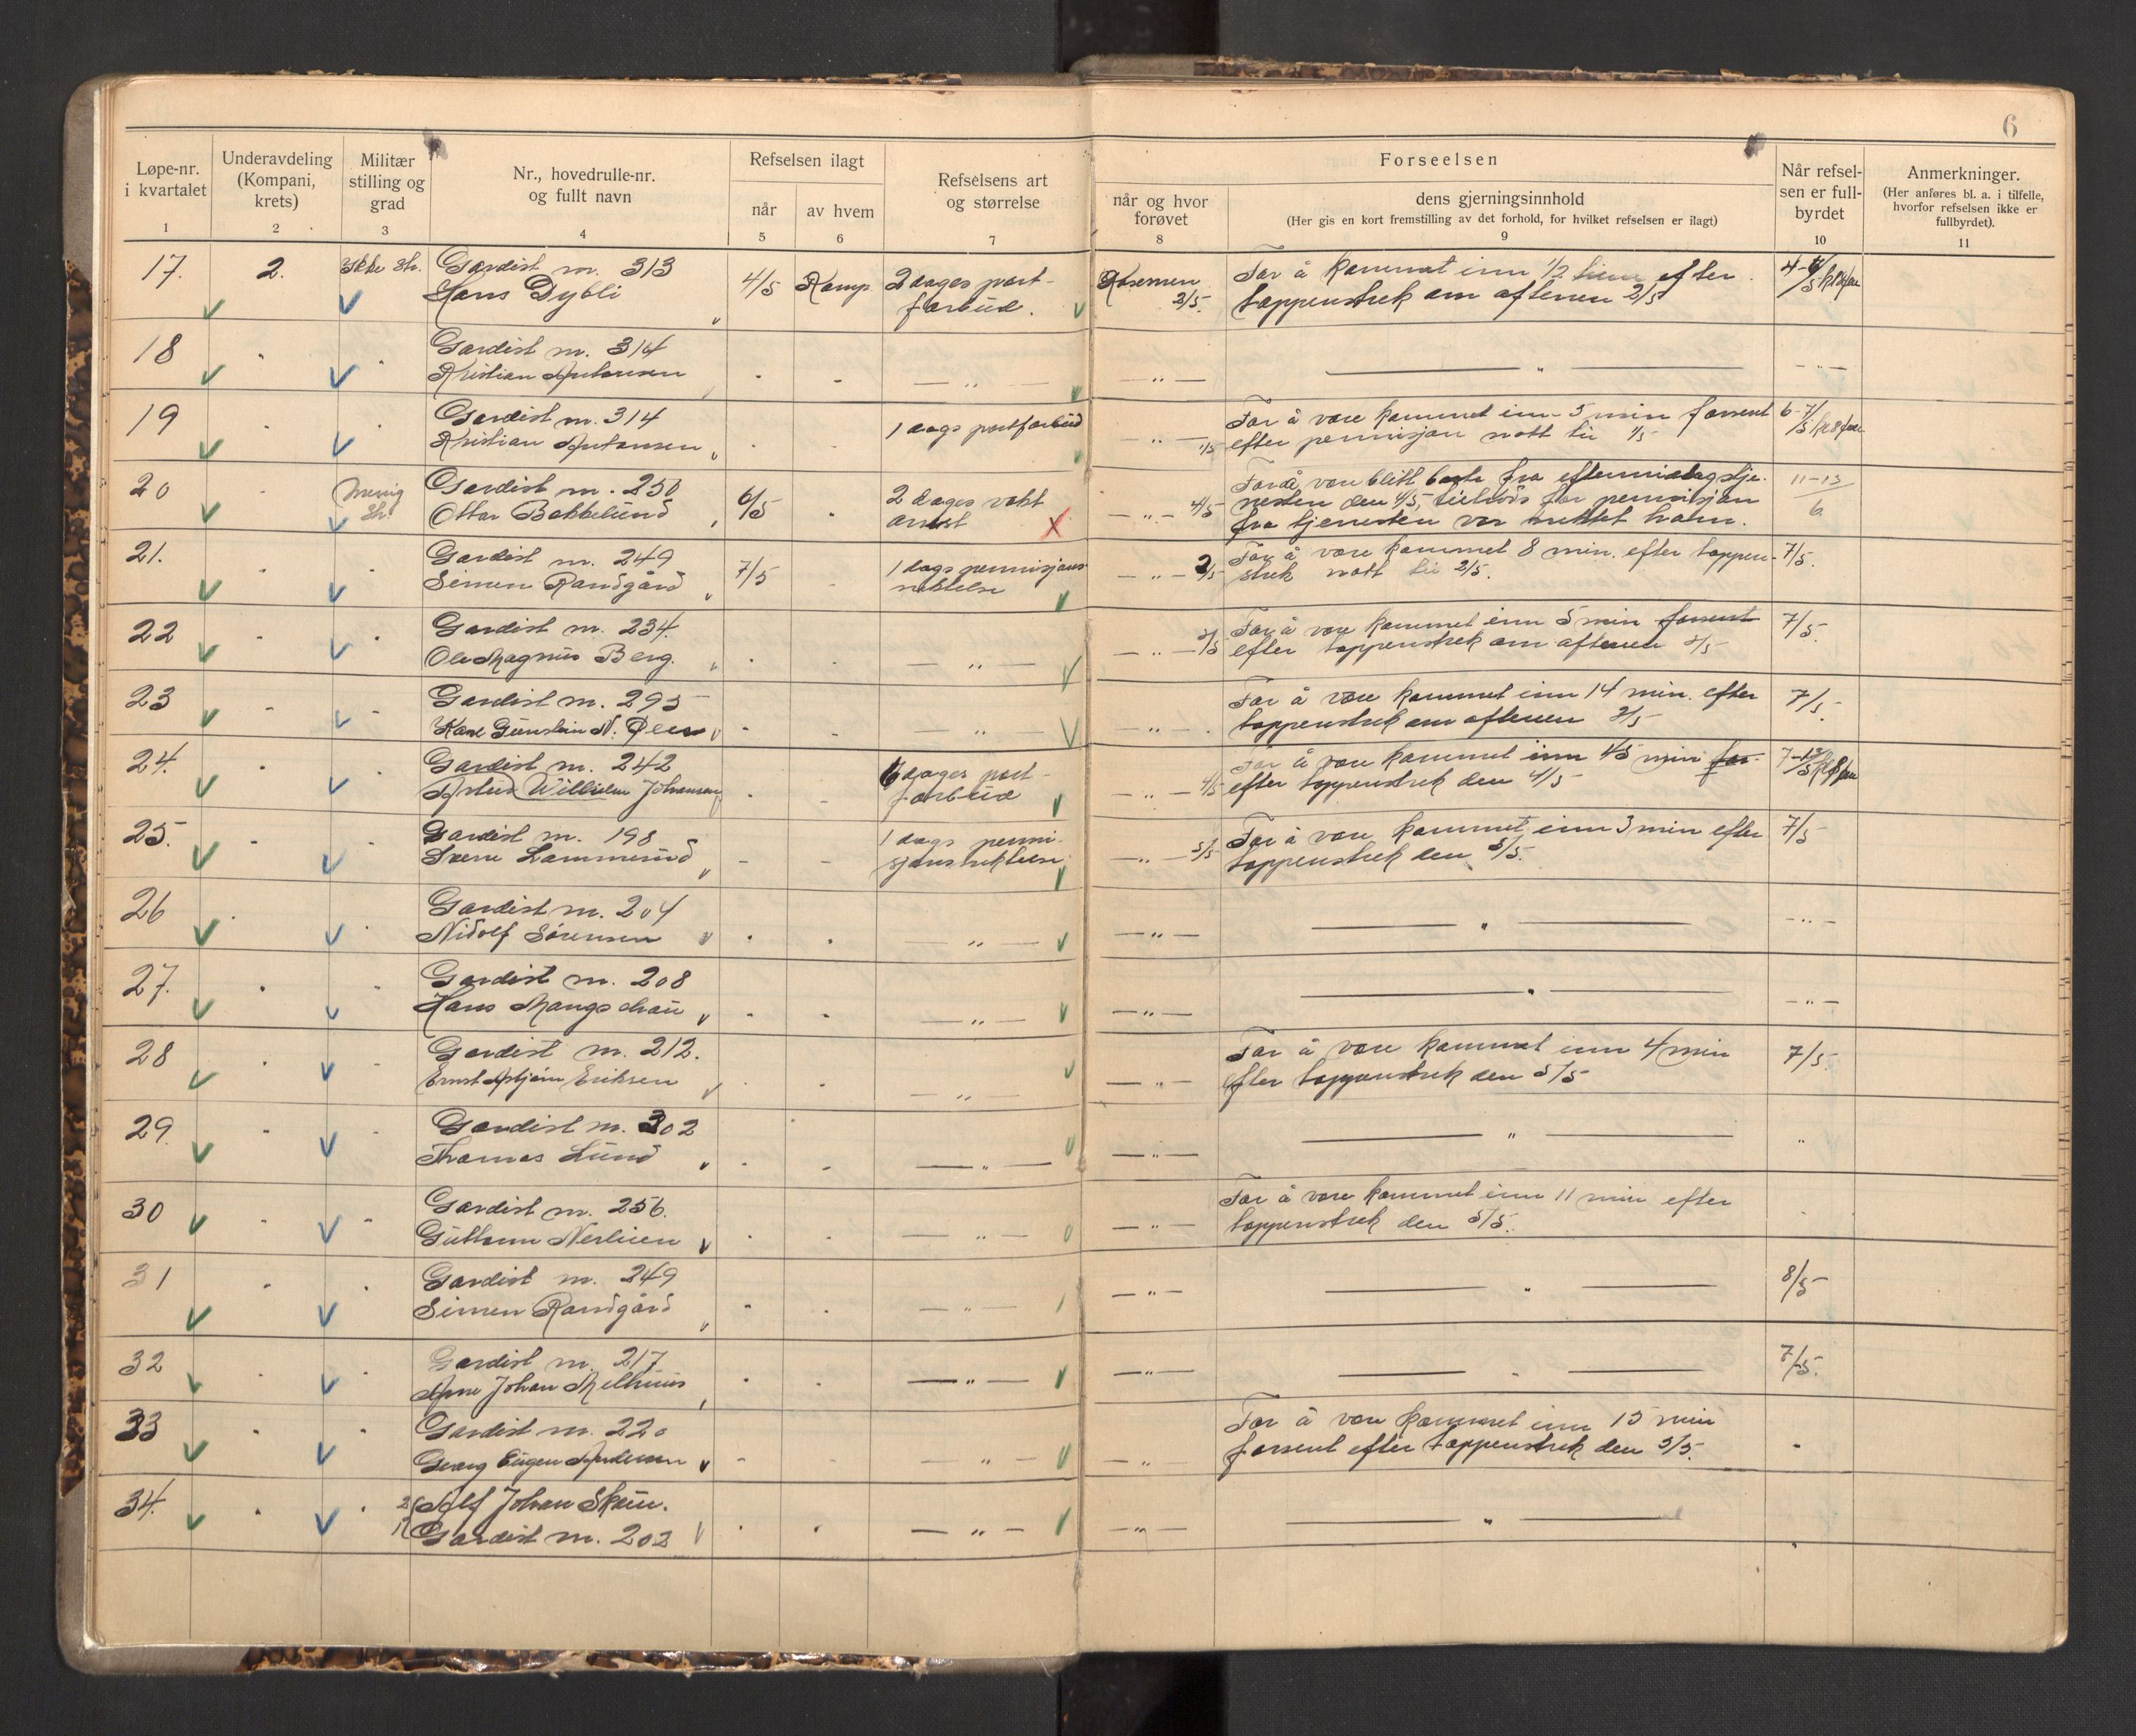 6
Løpe-nr. i kvartalet
Underavdeling (Kompani, krets)
Militær stilling og grad
Nr., hovedrulle-nr. og fullt navn
Refselsen ilagt
når
av hvem
Refselsens art og størrelse
Forseelsen
når og hvor forøvet
dens gjerningsinnhold
(Her gis en kort fremstilling av det forhold, for hvilket refselsen er ilagt)
Når refsel-sen er full-byrdet
Anmerkninger.
(Her anføres bl. a. i tilfelle, hvorfor refselsen ikke er fullbyrdet).
1 2 3 4 5 6 7 8 9 10 11
17. 2. Gardist nr. 313 4/5 Komp. 2 dages port- For å kommet inn 1/2 time efter
Hans Dybli forbud. 2/5. tappenstrek om aftenen 2/5
18 Gardist nr. 314
Kristian Antonsen — " — — " — — " — — " —
19 Gardist nr. 314 1 dags portforbud For å være kommet inn 5 min forsent
Kristian Antonsen — " — 1/5 efter permisjon natt til 1/5
20 Menig Gardist nr. 250 6/5 2 dages vakt For å være blitt borte fra eftermiddagstje-
Ottar Bakkelund arrest X — " — 4/5 nesten den 4/5, tiltross for permisjon 11-13
fra tjenesten var nektet ham. 6
21. Gardist nr. 249 7/5 1 dags permisjons- For å være kommet 8 min. efter tappen- 7/5.
Simen Randgård nektelse — " — 2/5 strek natt til 2/5.
22 Gardist nr. 234. For å være kommet inn 5 min forsent 7/5.
Ole Magnus Berg. — " — — " — efter tappenstrek om aftenen
23 Gardist nr. 295 For å være kommet inn 14 min. efter 7/5.
Gunstein N. — " — — " — tappenstrek om aftenen
24. Gardist nr. 242 6 dages port- For å være kommet inn 45 min for-
Wilhelm Johansen forbud — " — 4/5 efter tappenstrek den 4/5
25. Gardist nr. 198 1 dags permi- For å være kommet inn 3 min efter 7/5
Sverre Lammerud sjonsnektelse — " — 5/5 tappenstrek den 5/5.
26 Gardist nr. 204
Nidolf Sørensen — " — — " — — " — — " —
27. Gardist nr. 208
Hans Mangschau — " — — " — — " — — " —
28 Gardist nr. 212. For å være kommet inn 4 min 7/5.
Ernst Asbjørn Eriksen — " — — " — efter tappenstrek den 5/5
29. Gardist nr. 302
Thomas Lund — " — — " — — " — "
30 Gardist nr. 256. For å være kommet inn 11 min efter
Guttorm Nerlien — " — — " — tappenstrek den 5/5.
31 Gardist nr. 249 8/5
Simen Randgård — " — — " — — " —
32 Gardist nr. 217 7/5.
Arne Johan Melhuus — " — — " — — " —
33 Gardist nr. 220 For å være kommet inn 15 min
Georg Eugen Andersen — " — — " forsent efter tappenstrek den 5/5.
34. Alf Johan Skau.
Gardist nr. 202 — " — — " — — " —